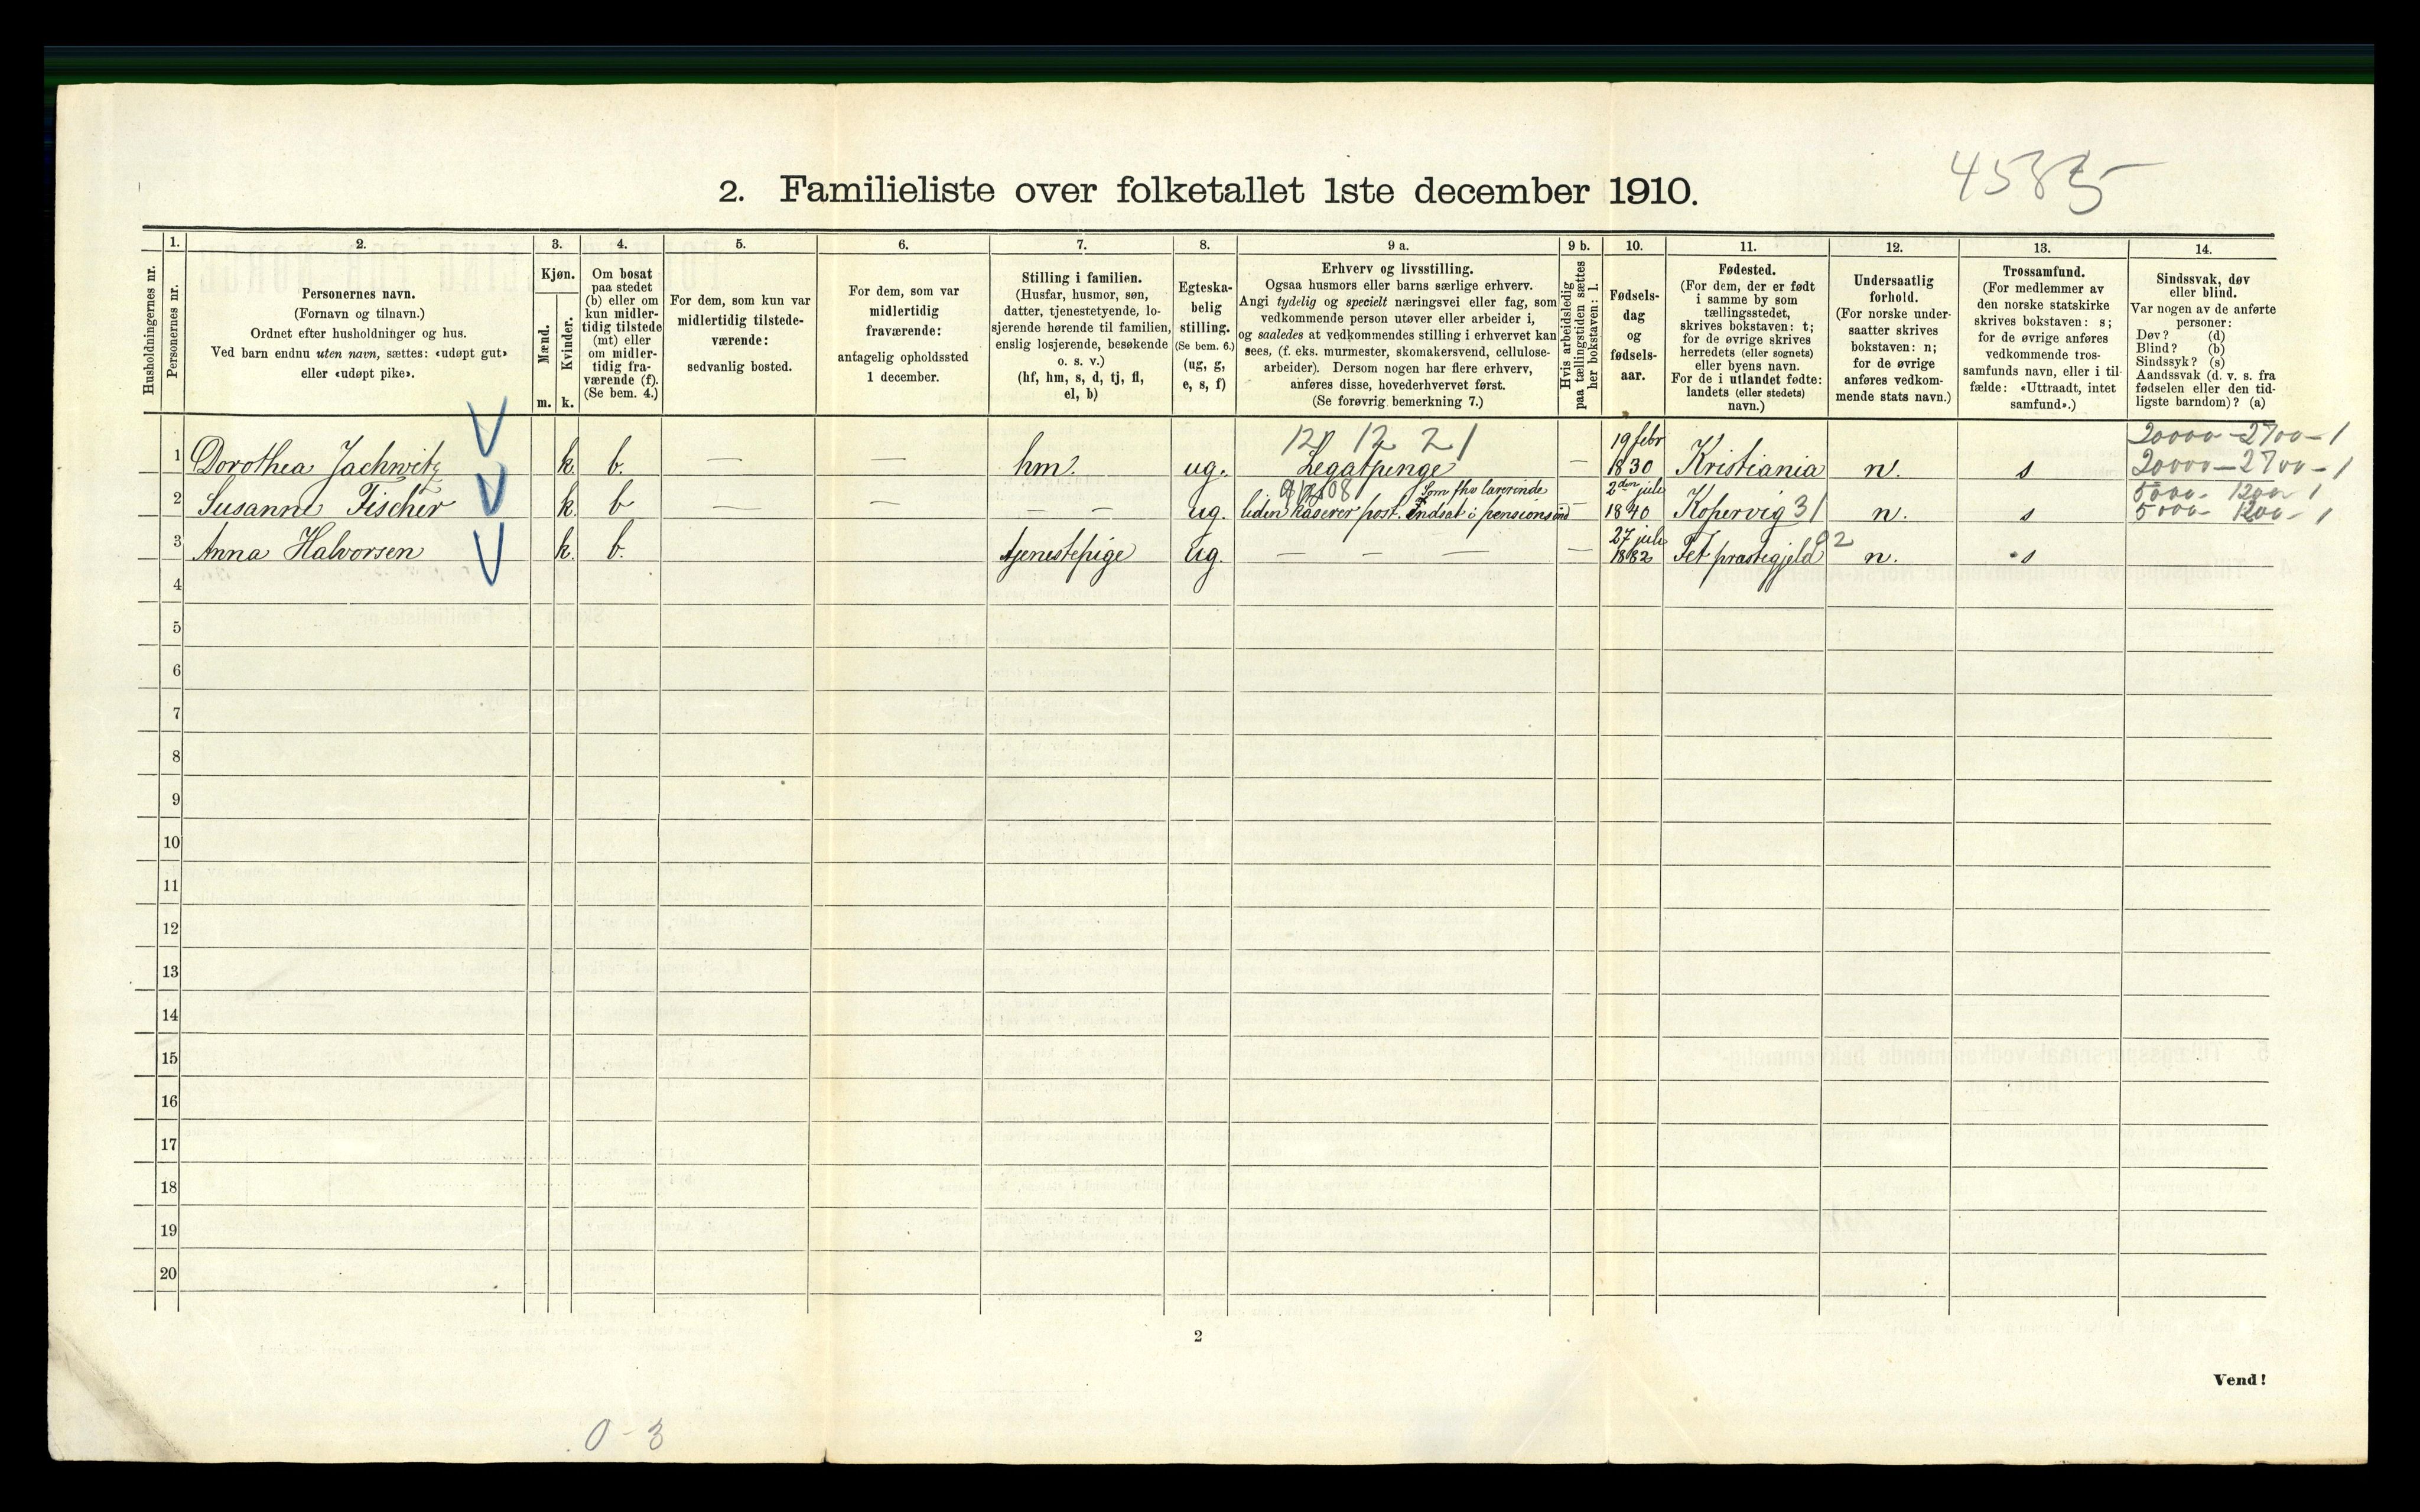 4585
2. Familieliste over folketallet 1ste december 1910.
Husholdningernes nr.
1.
Personernes nr.
2.
Personernes navn.
(Fornavn og tilnavn.)
Ordnet efter husholdninger og hus.
Ved barn endnu uten navn, sættes: «udøpt gut»
eller «udøpt pike».
3.
Kjøn.
Mænd.
Kvinder.
m. k.
4.
Om bosat
paa stedet
(b) eller om
kun midler-
tidig tilstede
(mt) eller
om midler-
tidig fra-
værende (f).
(Se bem. 4.)
5.
For dem, som kun var
midlertidig tilstede-
værende:
sedvanlig bosted.
6.
For dem, som var
midlertidig
fraværende:
antagelig opholdssted
1 december.
7.
Stilling i familien.
(Husfar, husmor, søn,
datter, tjenestetyende, lo-
sjerende hørende til familien,
enslig losjerende, besøkende
o. s. v.)
(hf, hm, s, d, tj, fl,
el, b)
8.
Egteska-
belig
stilling.
(Se bem. 6.)
(ug, g,
e, s, f)
9 a.
Erhverv og livsstilling.
Ogsaa husmors eller barns særlige erhverv.
Angi tydelig og specielt næringsvei eller fag, som
vedkommende person utøver eller arbeider i,
og saaledes at vedkommendes stilling i erhvervet kan
sees, (f. eks. murmester, skomakersvend, cellulose-
arbeider). Dersom nogen har flere erhverv,
anføres disse, hovederhvervet først.
(Se forøvrig bemerkning 7.)
9 b.
Hvis arbeidsledig
paa tællingstiden sættes
her bokstaven: l.
10.
Fødsels-
dag
og
fødsels-
aar.
11.
Fødested.
(For dem, der er født
i samme by som
tællingsstedet,
skrives bokstaven: t;
for de øvrige skrives
herredets (eller sognets)
eller byens navn.
For de i utlandet fødte:
landets (eller stedets)
navn.)
12.
Undersaatlig
forhold.
(For norske under-
saatter skrives
bokstaven: n;
for de øvrige
anføres vedkom-
mende stats navn.)
13.
Trossamfund.
(For medlemmer av
den norske statskirke
skrives bokstaven: s;
for de øvrige anføres
vedkommende tros-
samfunds navn, eller i til-
fælde: «Uttraadt, intet
samfund».)
14.
Sindssvak, døv
eller blind.
Var nogen av de anførte
personer:
Døv? (d)
Blind? (b)
Sindssyk? (s)
Aandssvak (d. v. s. fra
fødselen eller den tid-
ligste barndom)? (a)
12 21 19 febr 20000 - 2700 - 1
1 Dorothea Jachwitz k. b. — — hm. ug. Legatpenge — 1830 Kristiania n. s 20000 - 2700 - 1
Som fhv lærerinde 2den juli 5000 - 1200 - 1
2 Susanne Fischer k. b — — — — ug. liden post. Indsat i pensions — 1840 Kopervig 31 n. s 5000 - 1200 - 1
27 juli 02
3 Anna Halvorsen k. b. tjenestepige ug. — — — — 1882 Fet præstegjeld n. s
4
5
6
7
8
9
10
11
12
13
14
15
16
17
18
19
20
2
Vend!
0-3